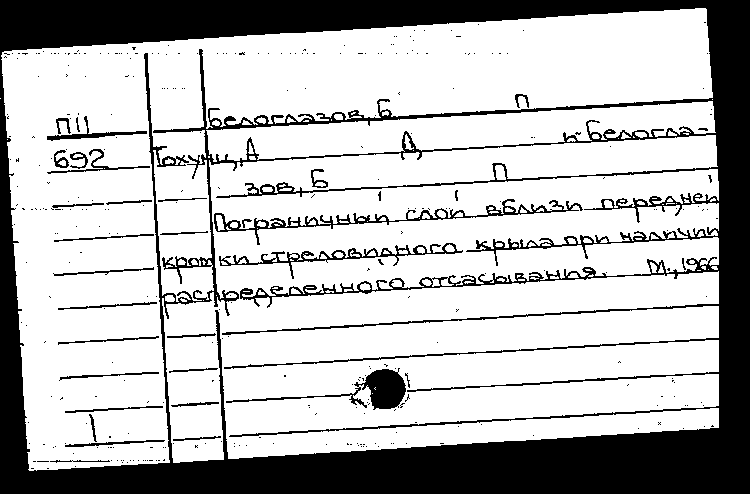 П11 Белоглазов, Б П
692 Тохунц, Д Д и Белогла-
зов, Б П
Пограничный слой вблизи передней
кромки стреловидного крыла при наличии
распределенного отсасывания. М., 1966